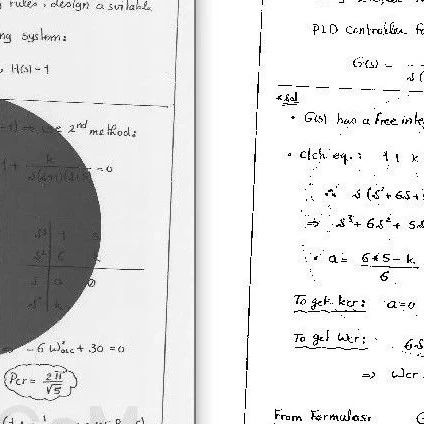 rules, design a suitable
ng system:
H(s) = 1
use 2nd method:
1 + k / s(s+1)(s+5) = 0
s³ 1 5
s² 6 k
s a 0
s° k
-6 W²osc + 30 = 0
Pcr = 2π / √5
PID Controller fo
G(s) =
s(
* sol
• G(s) has a free inte
• c/ch eq.: 1 + k
∴ s(s²+6s+5
⇒ s³ + 6s² + 5s
a = 6*5 - k / 6
To get kcr: a=0
To get Wcr: 6s
⇒ Wcr
From Formulas: